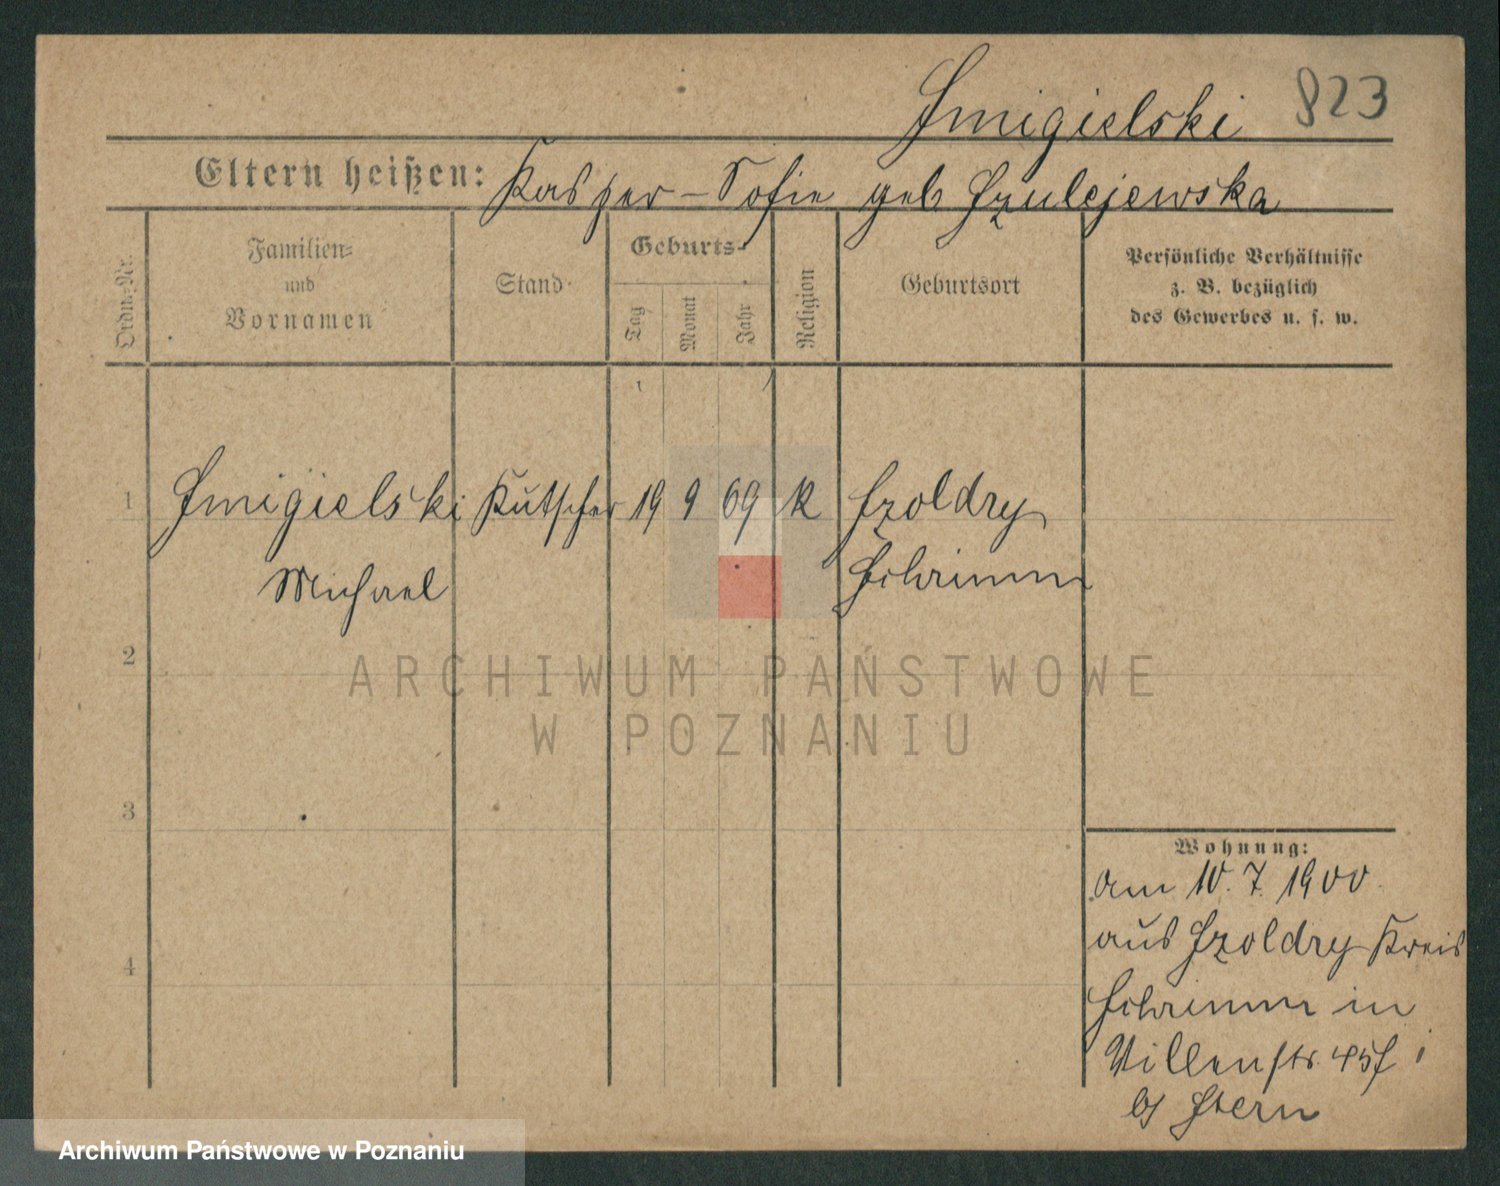 Smigielski 823
Eltern heißen: Kasper - Sofie geb Szulcjewska
Ordn.-Nr.
Familien-
und
Vornamen
Stand
Geburts-
Tag
Monat
Jahr
Religion
Geburtsort
Persönliche Verhältnisse
z. B. bezüglich
des Gewerbes u. s. w.
1 Smigielski Kutscher 19 9 69 K Szoldry
Michael Schrimm
2
ARCHIWUM PAŃSTWOWE
W POZNANIU
3
Wohnung:
am 10. 7. 1900
aus Szoldry Kreis
4
Schrimm in
Villenstr.
b/ Stern
Archiwum Państwowe w Poznaniu